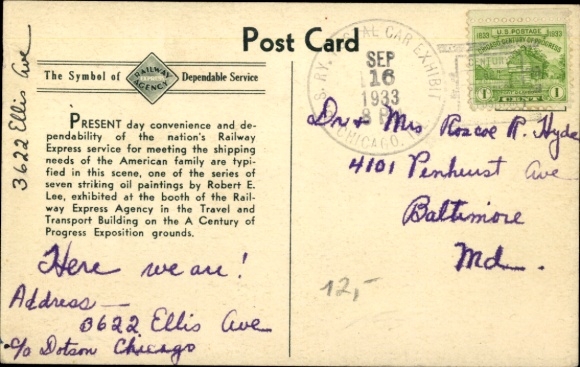 Post Card
The Symbol of RAILWAY EXPRESS AGENCY Dependable Service
PRESENT day convenience and de-
pendability of the nation's Railway
Express service for meeting the shipping
needs of the American family are typi-
fied in this scene, one of the series of
seven striking oil paintings by Robert E.
Lee, exhibited at the booth of the Rail-
way Express Agency in the Travel and
Transport Building on the A Century of
Progress Exposition grounds.
3622 Ellis Ave
Here we are!
Address—
3622 Ellis Ave
c/o Dotson Chicago
SEP
16
1933
CAR EXHIBIT
CHICAGO
U.S. POSTAGE
1833 1933
1 CENT 1
Dr & Mrs Roscoe R. Hyde
4101 Penhurst Ave
Baltimore
Md.
12,-